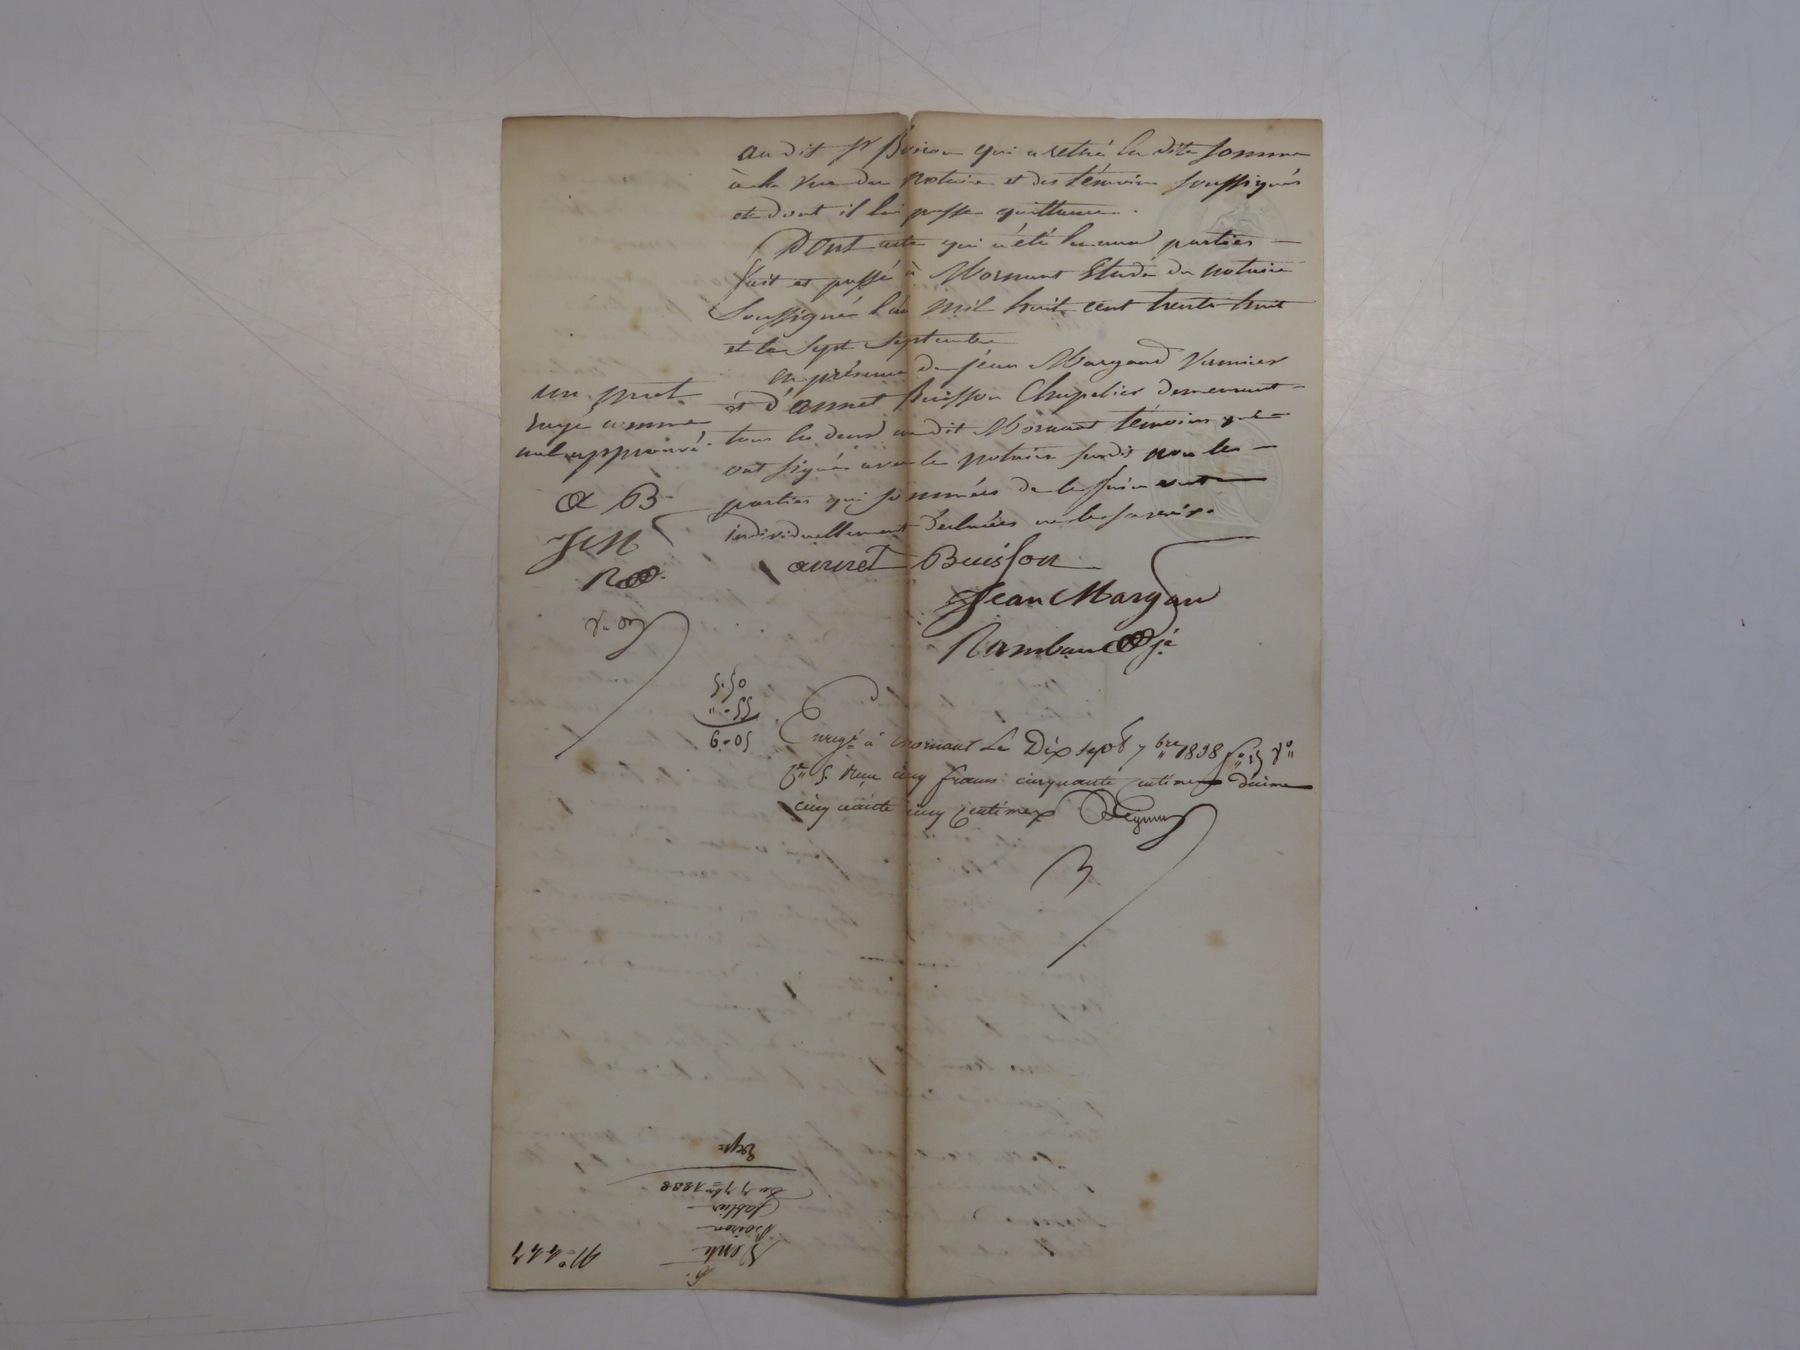 au dit Sr Boiron qui a retiré la dite somme
à la vue du notaire et des témoins soussignés
et dont il lui passe quittance.
Dont acte qui a été lu aux parties
fait et passé à Mornant Etude du notaire
Soussigné l'an mil huit cent trente huit
et le sept septembre
en présence de jean Margand
et d'annet Buisson Chapelier demeurant
tous les deux au dit Mornant témoins qui
ont signés avec le notaire susdit non les
parties qui sommées de le faire ont
individuellement declarées ne le savoir.
un mot
rayé comme
nul approuvé.
a B
JM
R
annet Buisson
Jean Margan
Rambaud
5.50
" - 55
6-05
Enregé à mornant Le Dix sept 7bre 1838 fo 15 Vo
Co 5 Reçu cinq francs cinquante centimes décime
cinquante cinq centimes
Vente
Boiron
Sablier
Du 7 7bre 1838
Exp
No 447